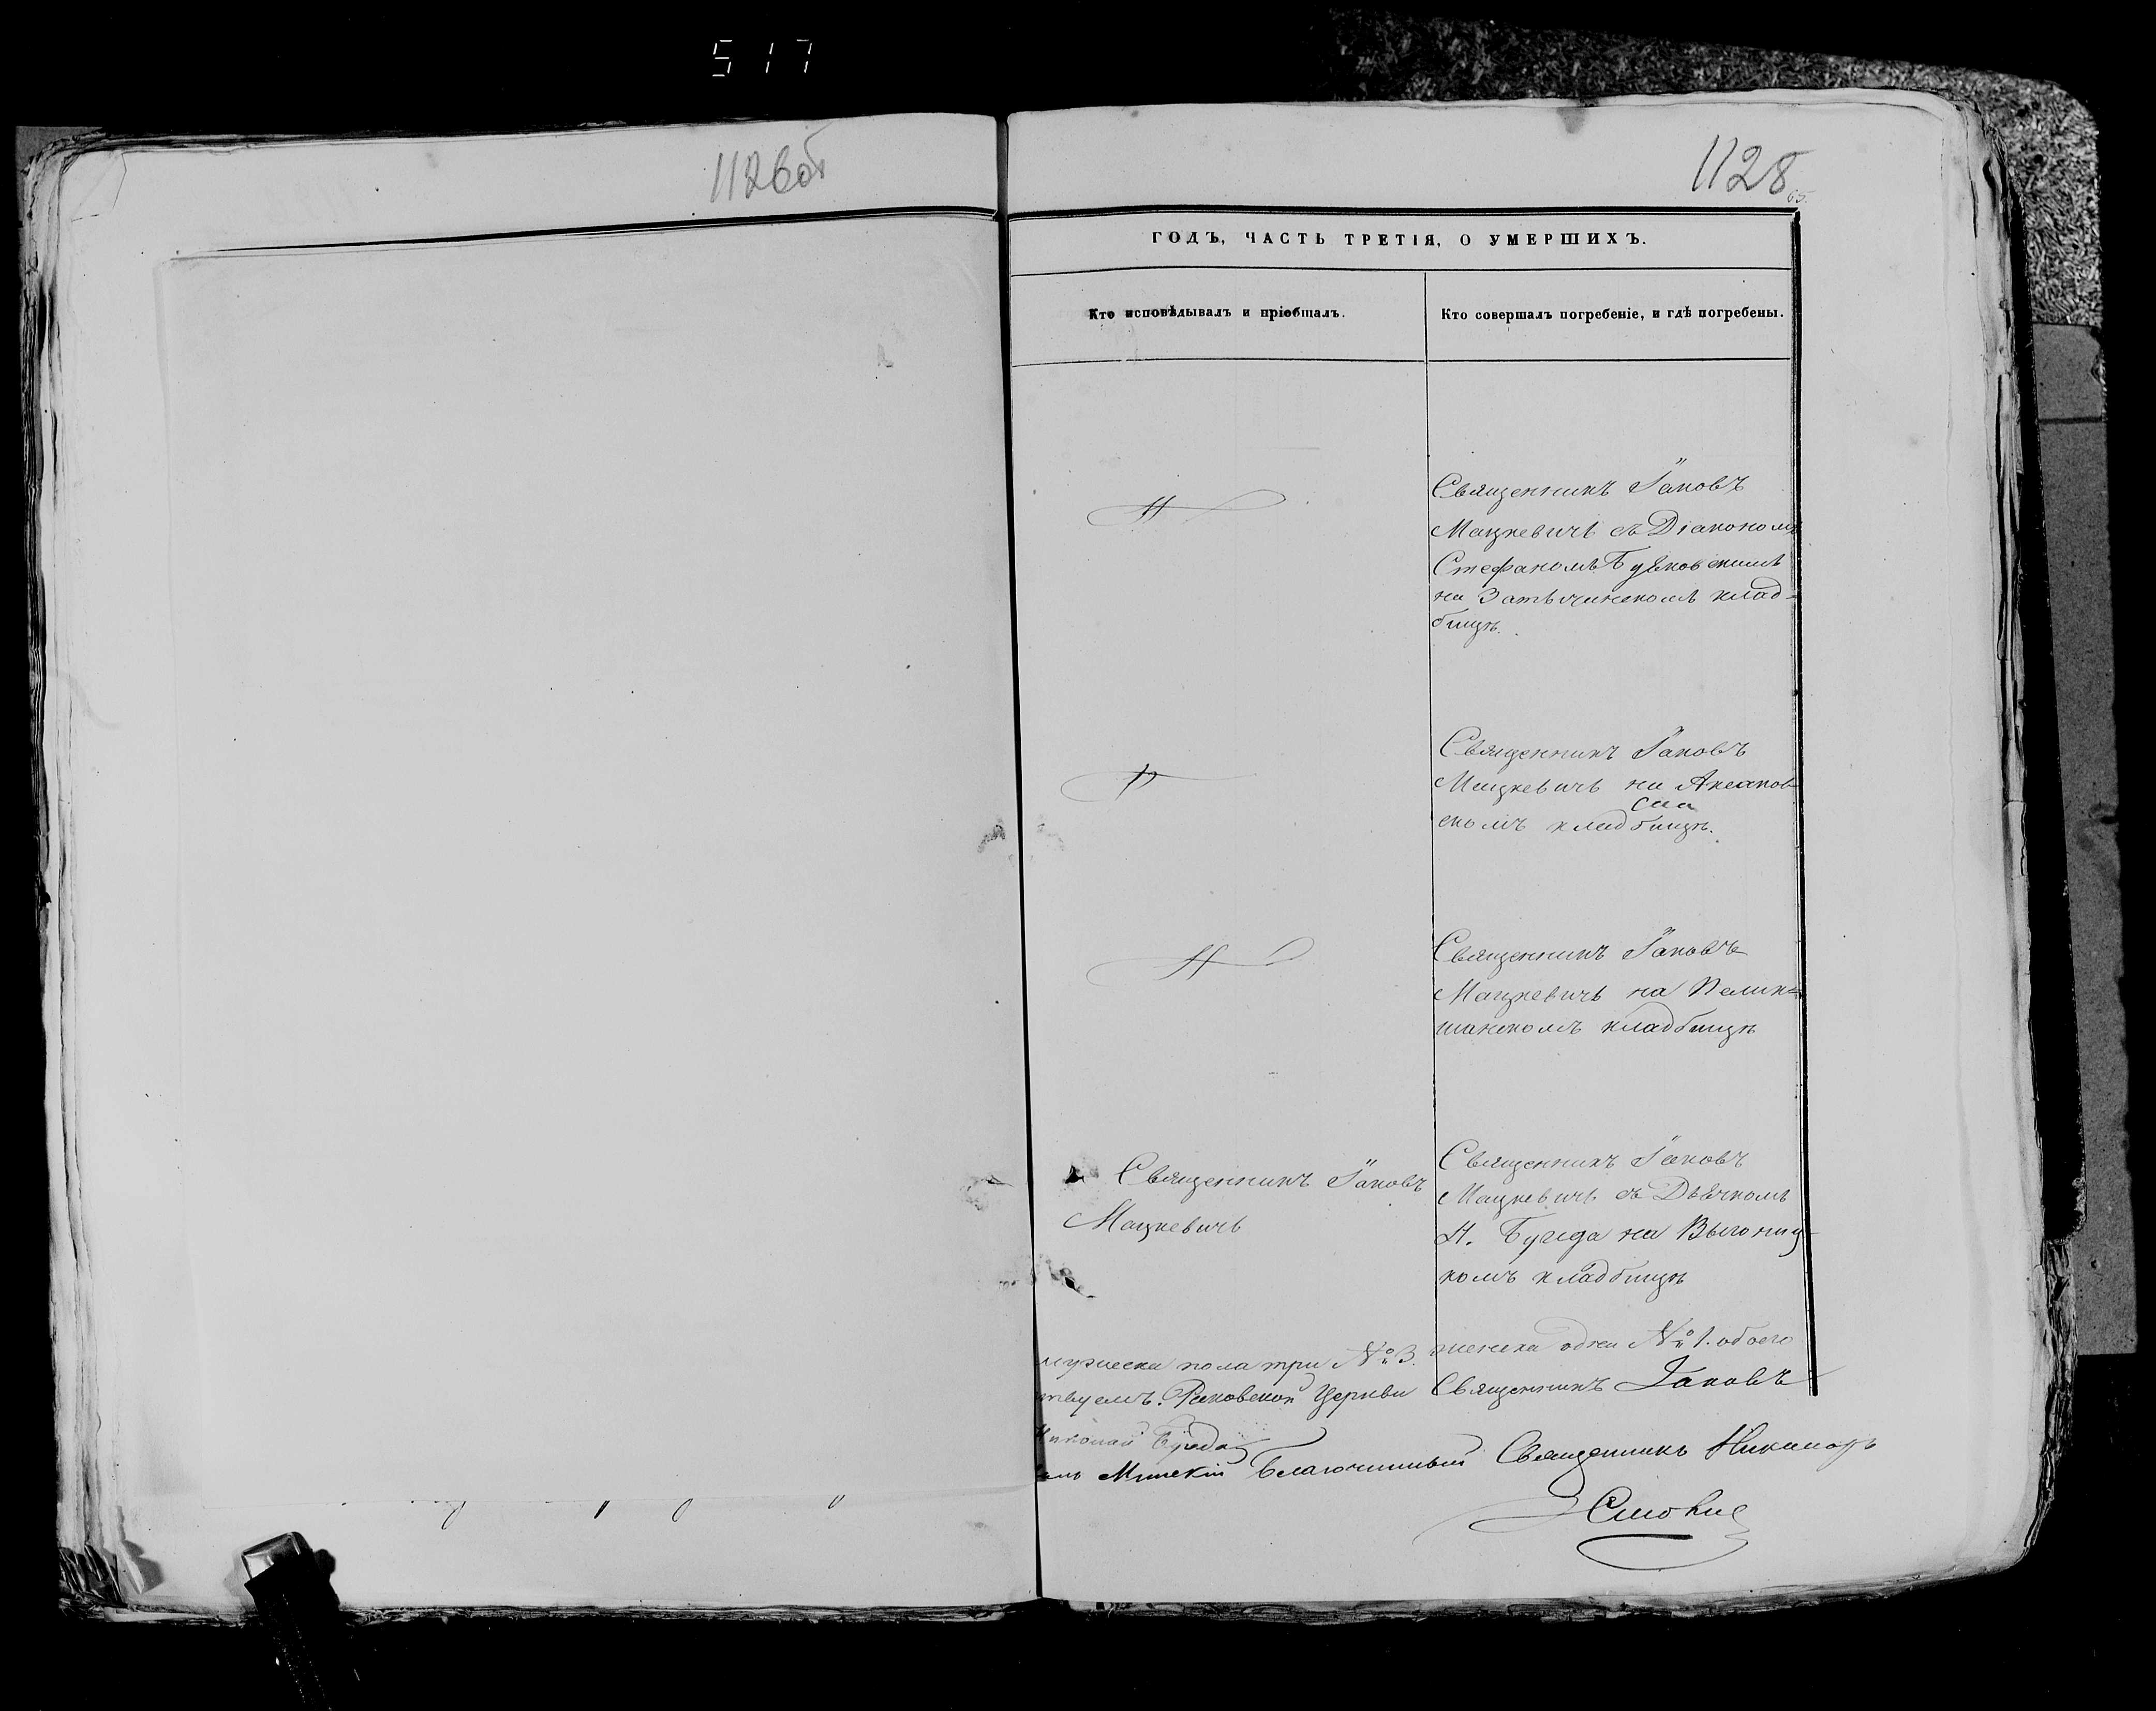 517
1126об
1128
65.
ГОДЪ, ЧАСТЬ ТРЕТІЯ, О УМЕРШИХЪ.
Кто исповѣдывалъ и пріобщалъ.
Кто совершалъ погребеніе, и гдѣ погребены.
Священникъ Іаковъ
Мацкевичъ съ Діакономъ
Стефаномъ
на клад-
бищѣ.
Священникъ Іаковъ
Мацкевичъ на Аксаков-
скомъ кладбищѣ.
Священникъ Іаковъ
Мацкевичъ на Пелик-
шанскомъ кладбищѣ
Священникъ Іаковъ
Мацкевичъ
Священникъ Іаковъ
Мацкевичъ съ Дьячкомъ
Н. на Выгониц-
комъ кладбищѣ
мужеска пола три № 3. женска одна № 1. обоего
Раковской Церкви Священникъ Іаковъ
Николай
Минскій Благочинный Священникъ Никаноръ
Смолич